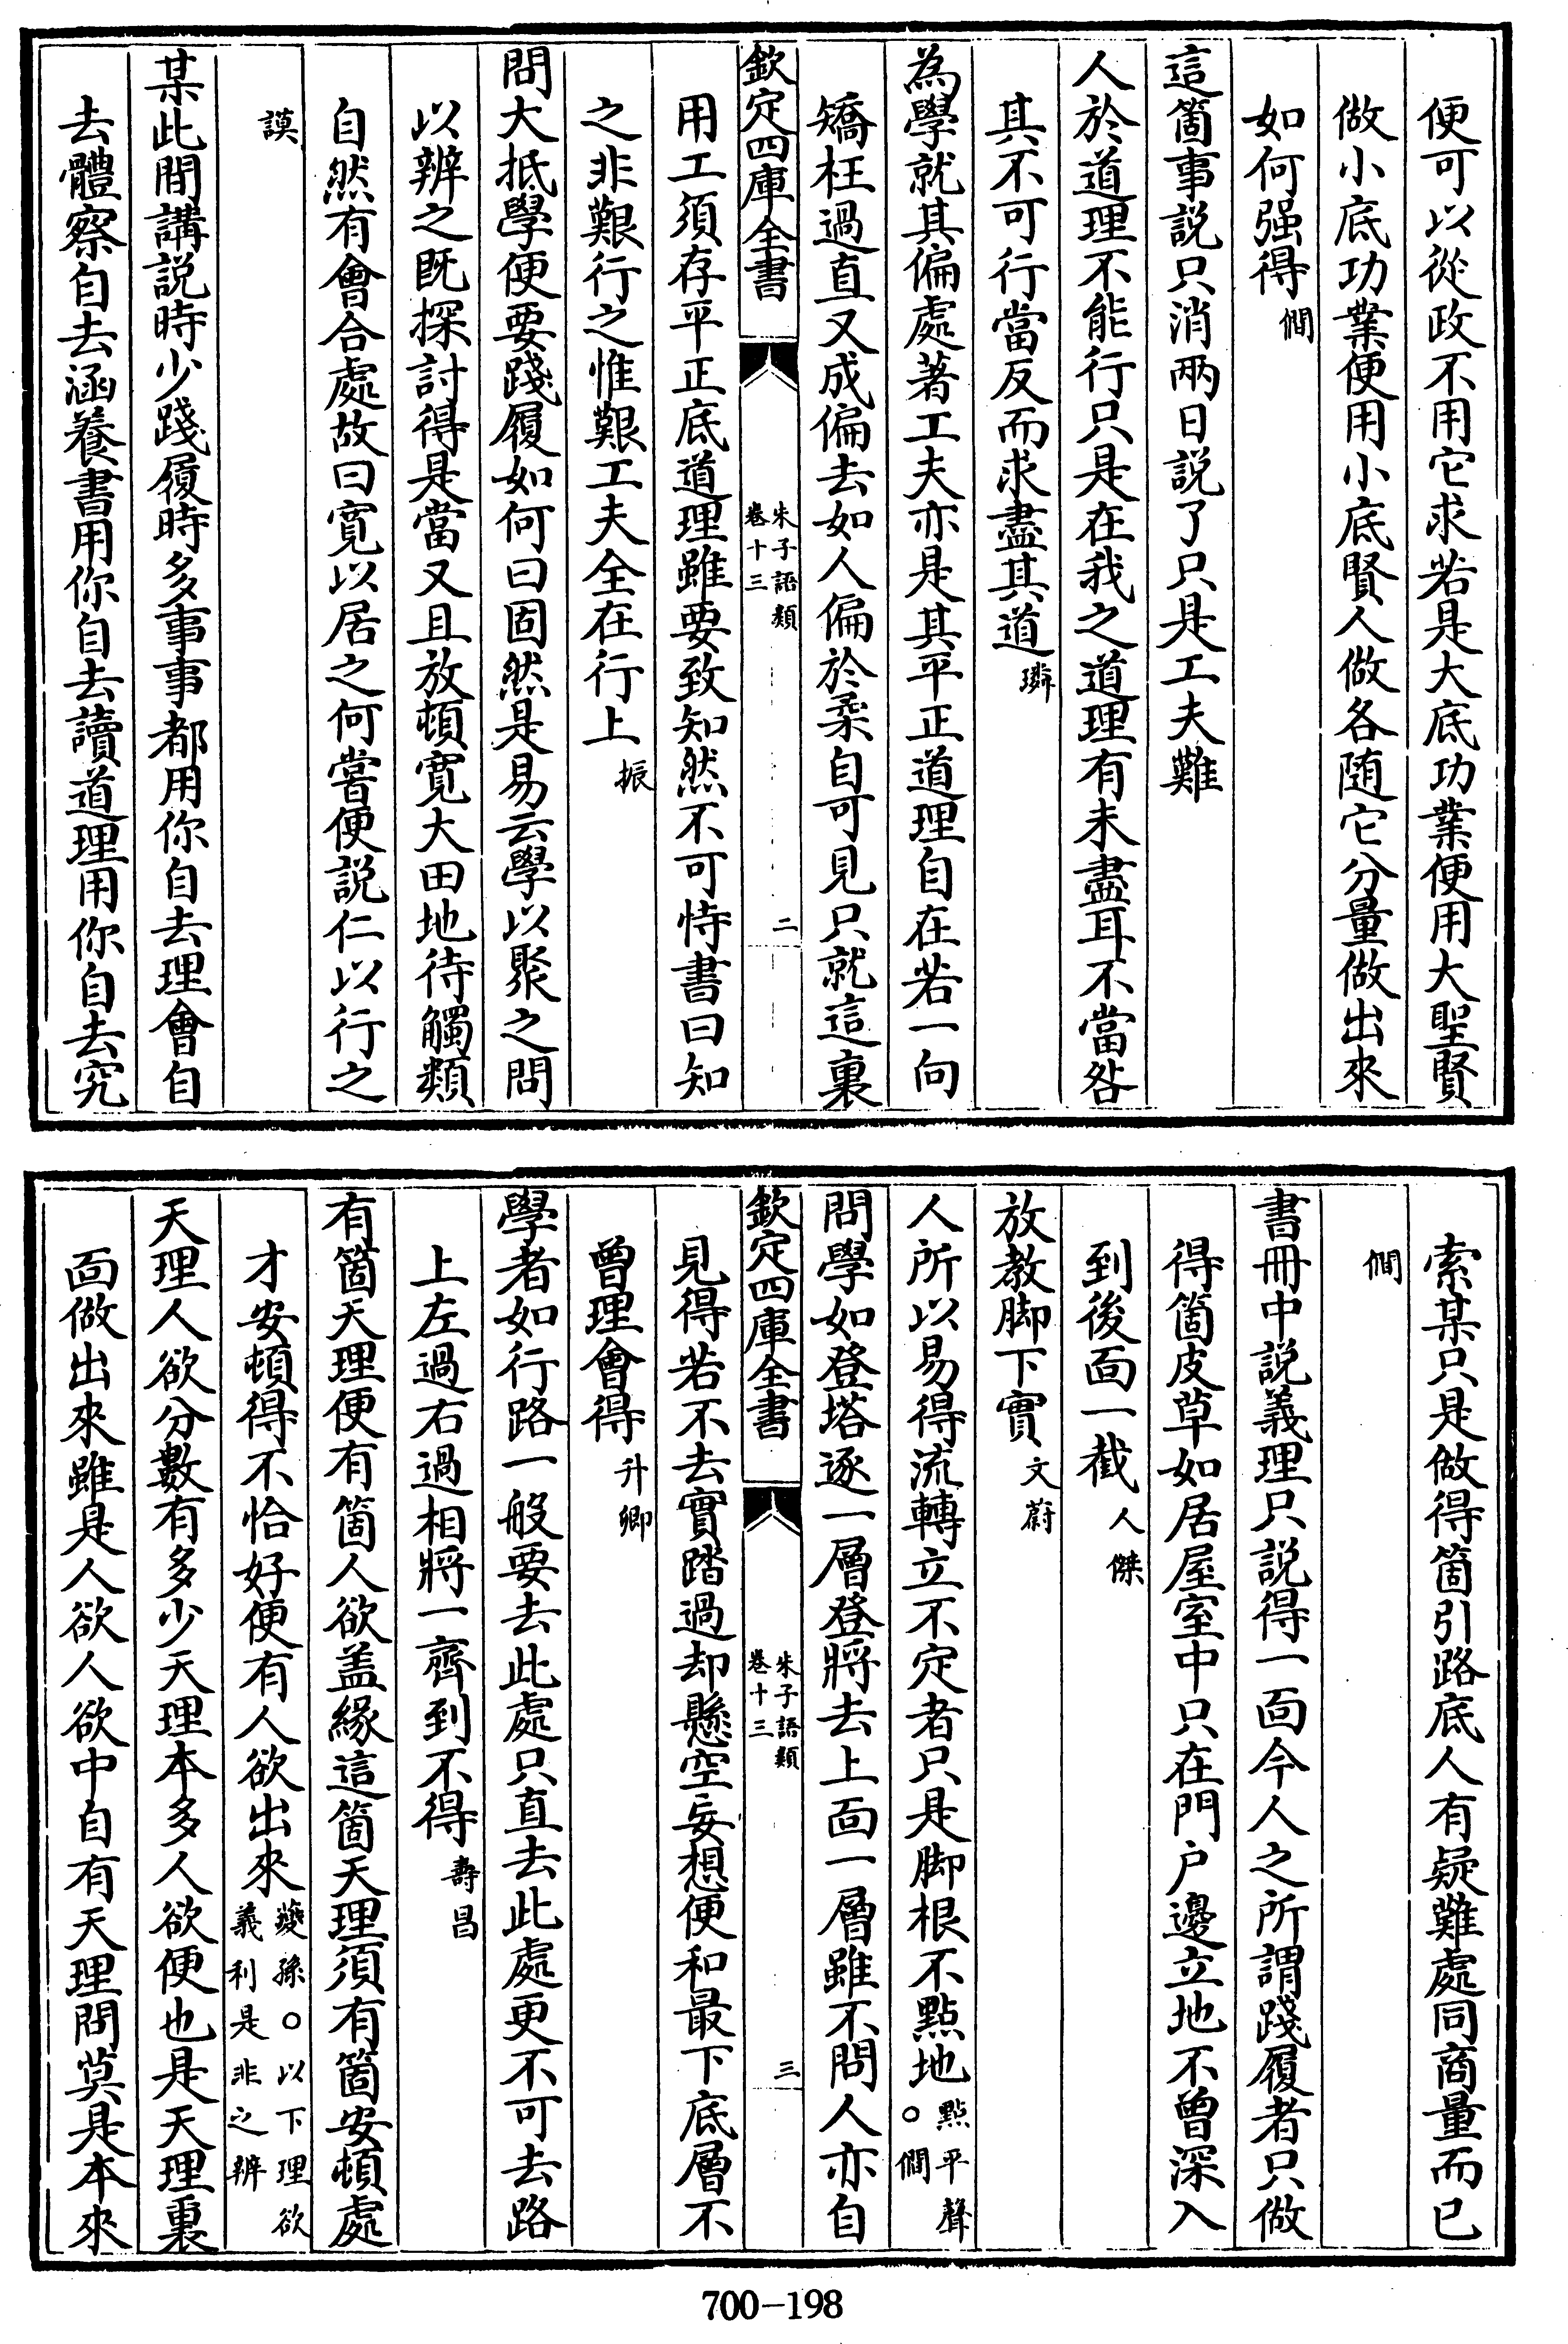 便可以從政不用它求若是大底功業便用大聖賢
做小底功業便用小底賢人做各隨它分量做出來
如何强得僩
這箇事説只消兩日説了只是工夫難
人於道理不能行只是在我之道理有未盡耳不當咎
其不可行當反而求盡其道璘
為學就其偏處著工夫亦是其平正道理自在若一向
矯枉過直又成偏去如人偏於柔自可見只就這裏
欽定四庫全書
朱子語類
卷十三
二
用工須存平正底道理雖要致知然不可恃書曰知
之非艱行之惟艱工夫全在行上振
問大抵學便要踐履如何曰固然是易云學以聚之問
以辨之既探討得是當又且放頓寛大田地待觸類
自然有會合處故曰寛以居之何嘗便説仁以行之
謨
某此間講説時少踐履時多事事都用你自去理會自
去體察自去涵養書用你自去讀道理用你自去究
索某只是做得箇引路底人有疑難處同商量而已
僩
書冊中説義理只説得一面今人之所謂踐履者只做
得箇皮草如居屋室中只在門户邊立地不曾深入
到後面一截人傑
放教脚下實文蔚
人所以易得流轉立不定者只是脚根不點地點平聲
○僩
問學如登塔逐一層登將去上面一層雖不問人亦自
欽定四庫全書
朱子語類
卷十三
三
見得若不去實踏過却懸空妄想便和最下底層不
曾理會得升卿
學者如行路一般要去此處只直去此處更不可去路
上左過右過相將一齊到不得壽昌
有箇天理便有箇人欲盖緣這箇天理須有箇安頓處
才安頓得不恰好便有人欲出來䕫孫○以下理欲
義利是非之辨
天理人欲分數有多少天理本多人欲便也是天理裏
面做出來雖是人欲人欲中自有天理問莫是本來
700-198